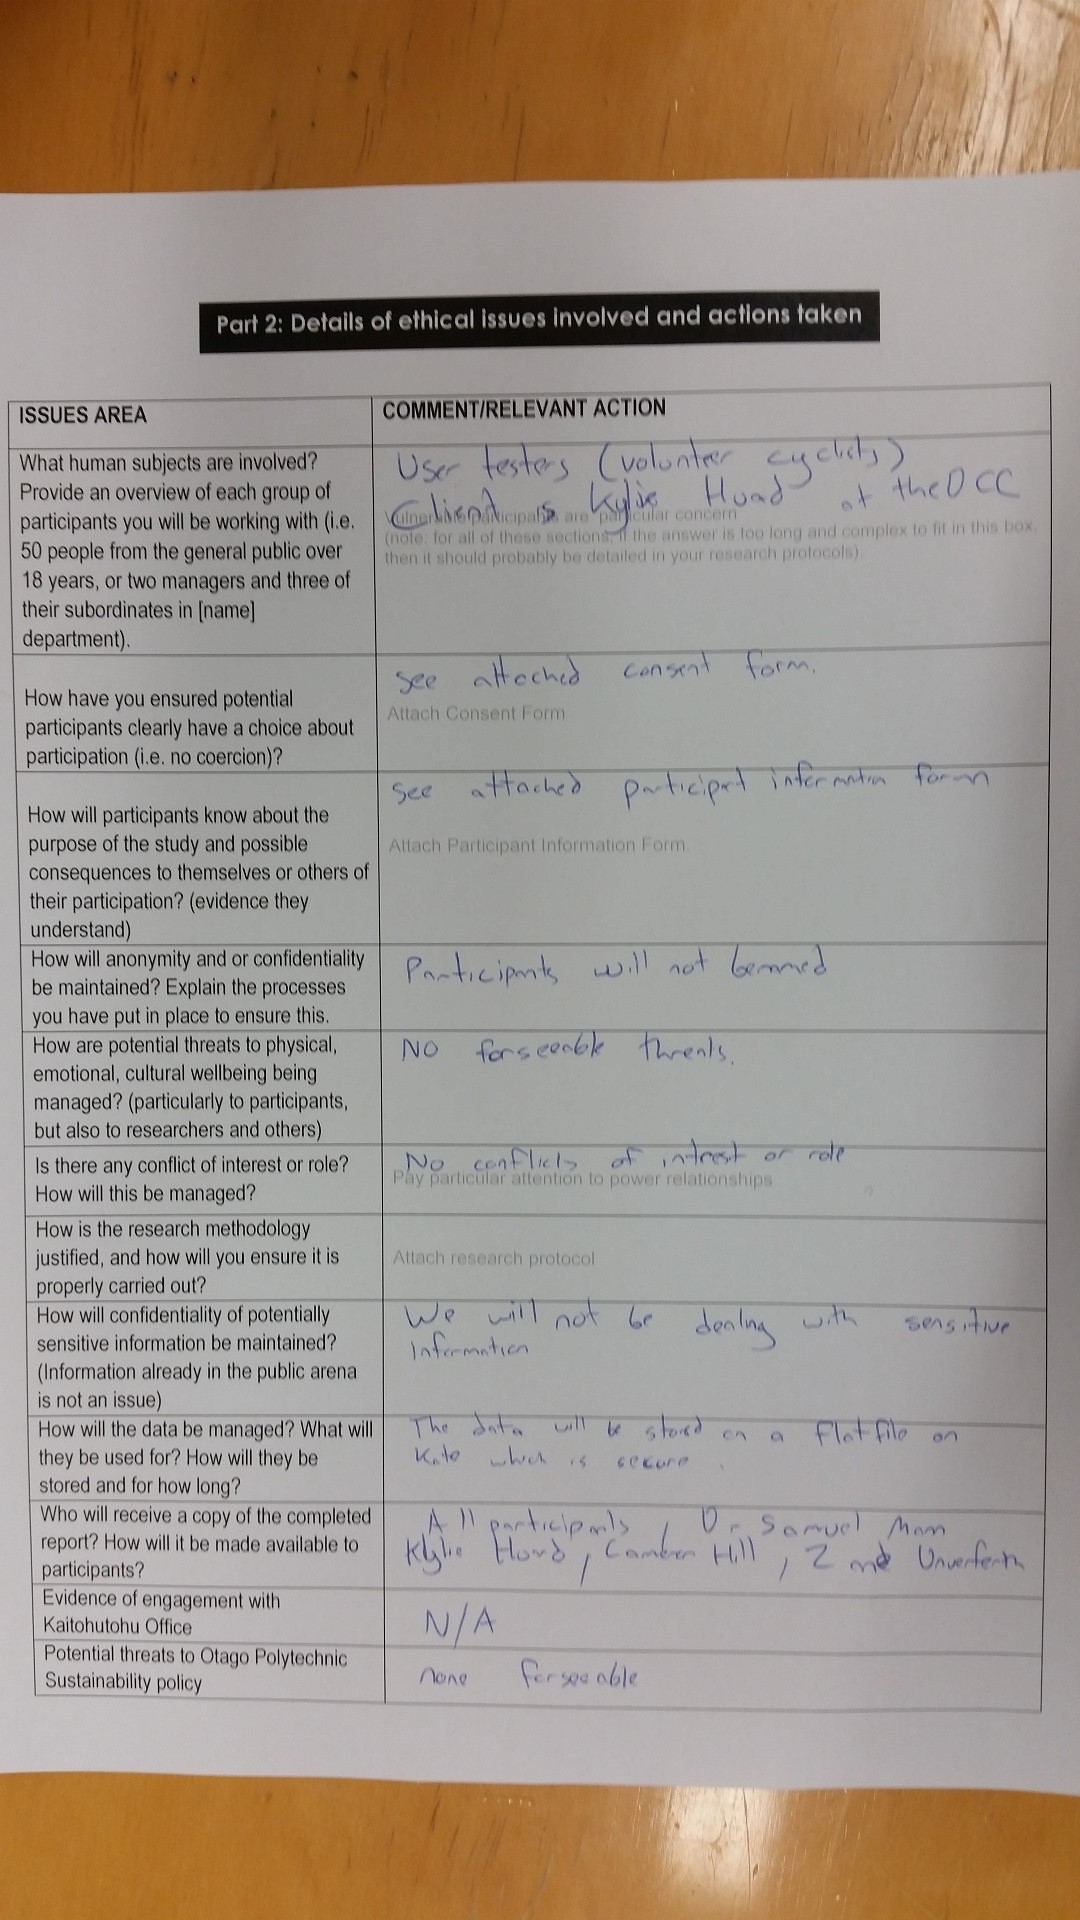 Part 2: Details of ethical issues involved and actions taken
ISSUES AREA
COMMENT/RELEVANT ACTION
What human subjects are involved?
Provide an overview of each group of
participants you will be working with (i.e.
50 people from the general public over
18 years, or two managers and three of
their subordinates in [name]
department).
User testers (volunteer cyclists)
Client is Kylie at the DCC
Vulnerable participants are particular concern
(note: for all of these sections, if the answer is too long and complex to fit in this box,
then it should probably be detailed in your research protocols).
How have you ensured potential
participants clearly have a choice about
participation (i.e. no coercion)?
see attached consent form.
Attach Consent Form
How will participants know about the
purpose of the study and possible
consequences to themselves or others of
their participation? (evidence they
understand)
see attached participant information form
Attach Participant Information Form.
How will anonymity and or confidentiality
be maintained? Explain the processes
you have put in place to ensure this.
Participants will not be named
How are potential threats to physical,
emotional, cultural wellbeing being
managed? (particularly to participants,
but also to researchers and others)
NO forseeable threats.
Is there any conflict of interest or role?
How will this be managed?
No conflicts of intrest or role
Pay particular attention to power relationships
How is the research methodology
justified, and how will you ensure it is
properly carried out?
Attach research protocol
How will confidentiality of potentially
sensitive information be maintained?
(Information already in the public arena
is not an issue)
We will not be dealing with sensitive
information
How will the data be managed? What will
they be used for? How will they be
stored and for how long?
The data will be stored on a flat file on
Kate which is secure.
Who will receive a copy of the completed
report? How will it be made available to
participants?
All participants, Dr Samuel Mann
Kylie, Cameron Hill,
Evidence of engagement with
Kaitohutohu Office
N/A
Potential threats to Otago Polytechnic
Sustainability policy
none forseeable